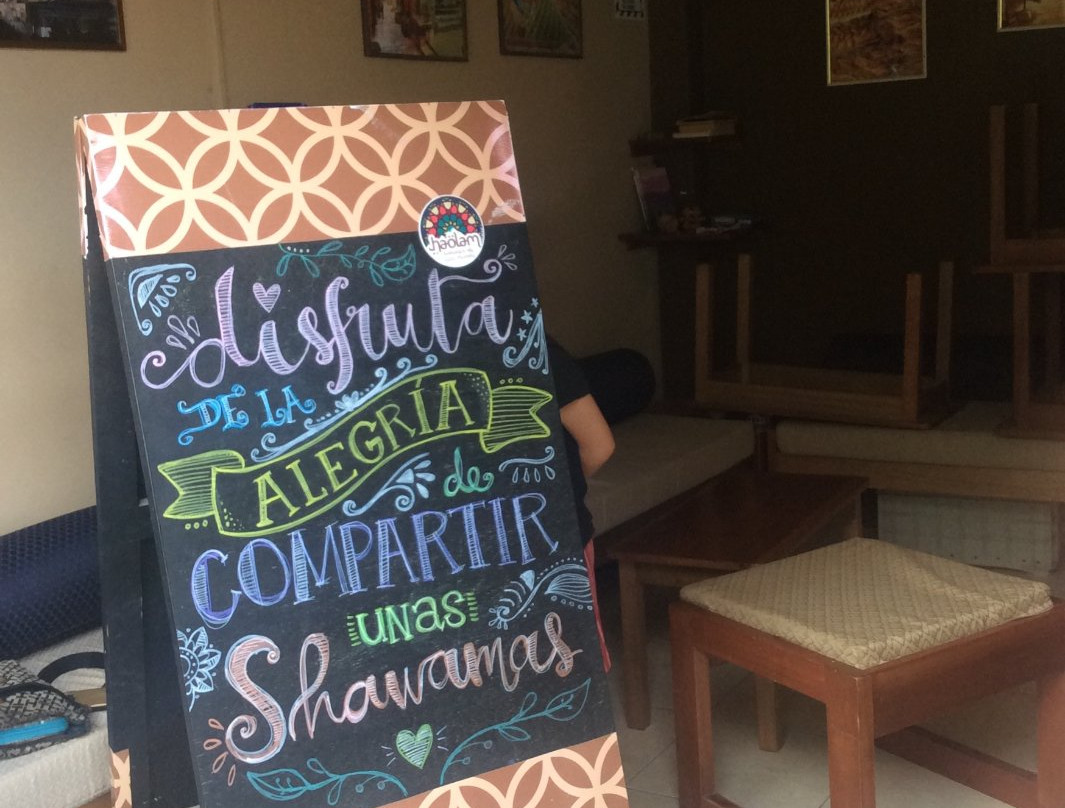 haólam
disfruta
DE LA
ALEGRÍA
de
COMPARTIR
UNAS
Shawamas